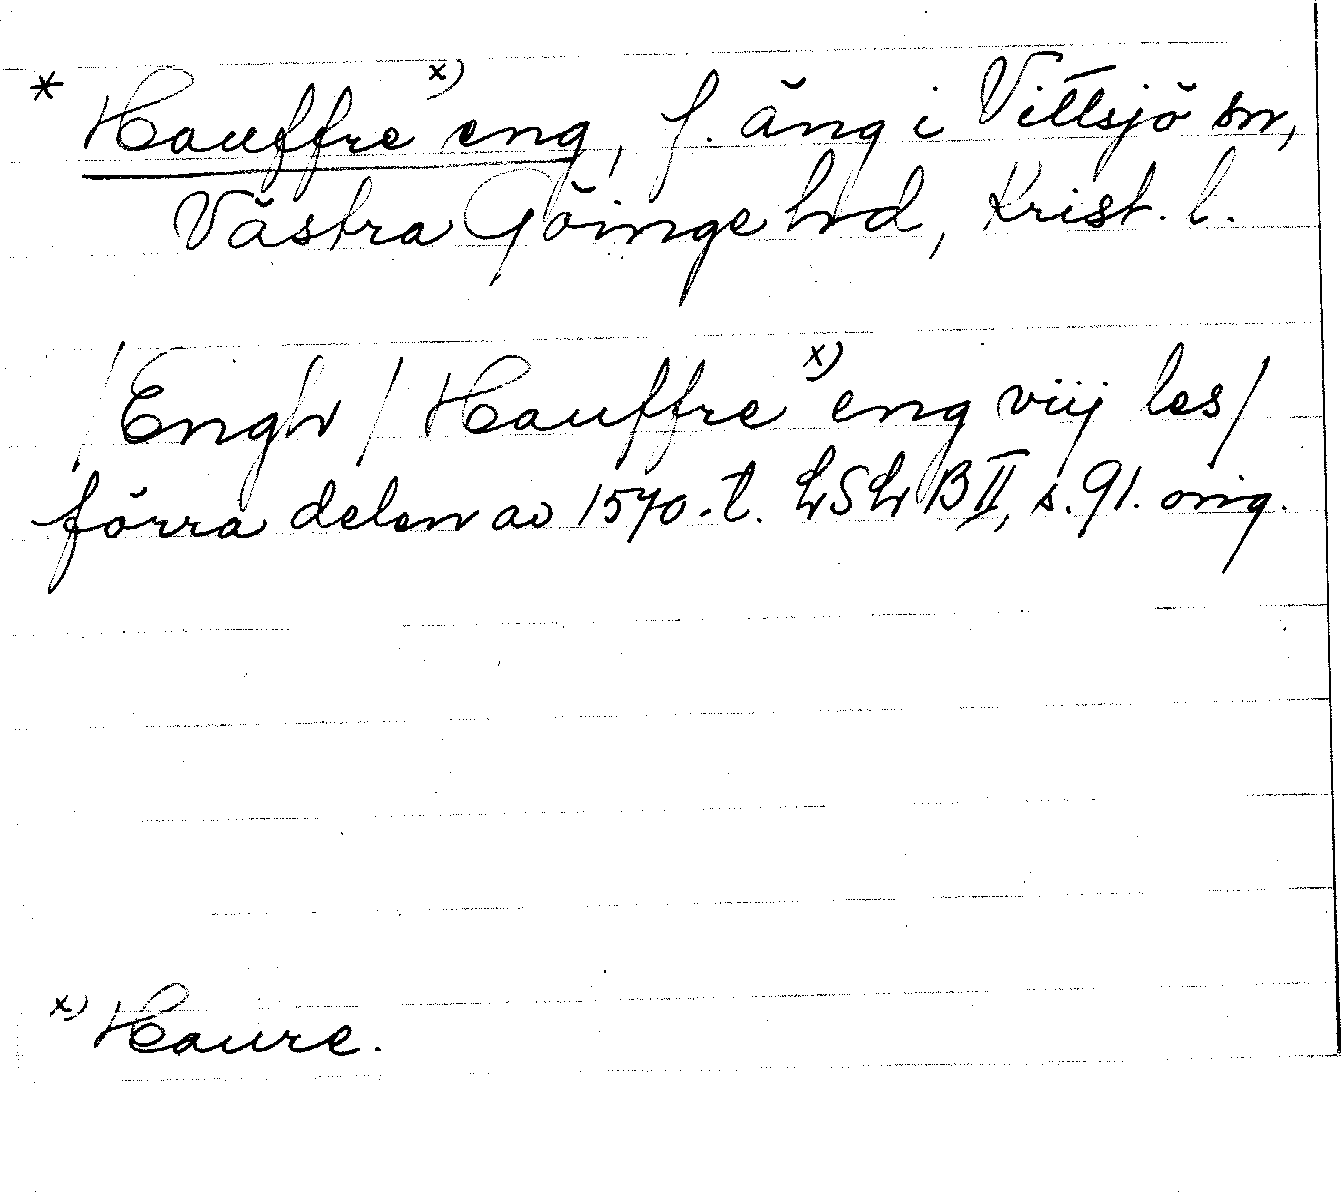 * Hauffre x) eng, f. äng i Vittsjö sn,
Västra Göinge hd, Krist. l.
/Engh/ Hauffre x) eng viij les/
förra delen av 1570-t. LSL B II, s. 91. orig.
x) Haure.